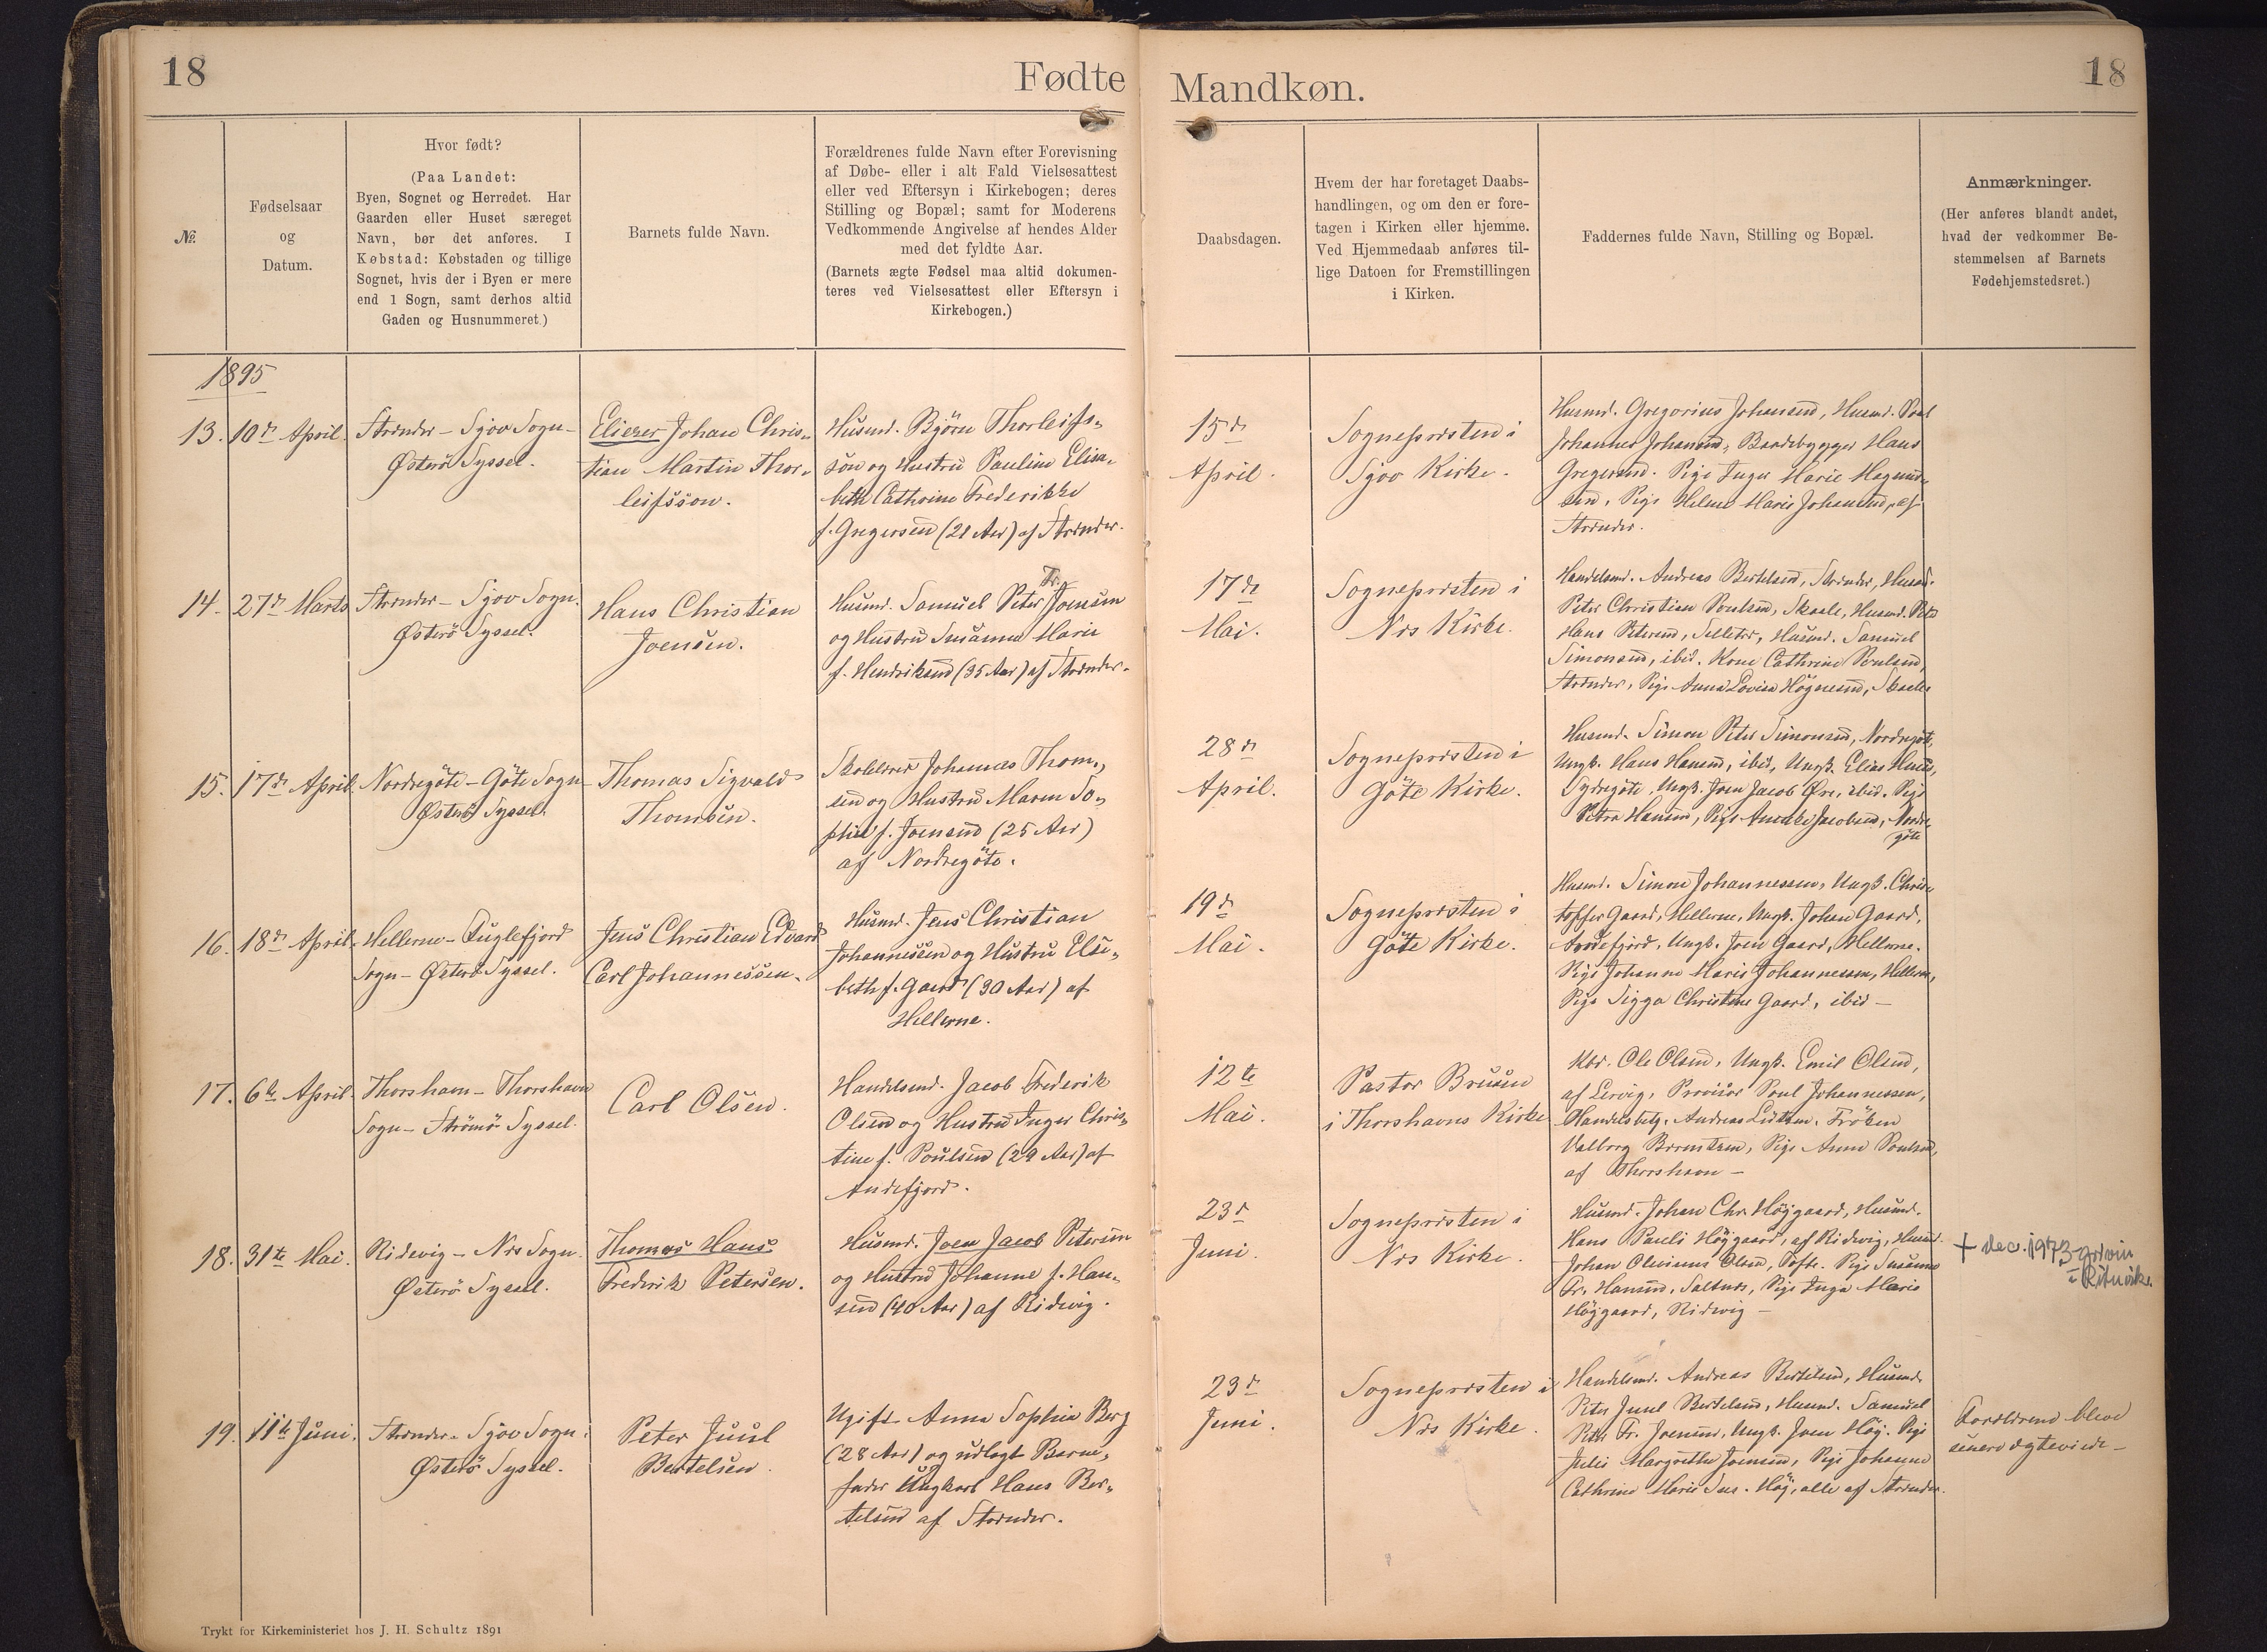 18
Fødte
Mandkøn.
18
№
Fødselsaar
og
Datum.
Hvor født?
(Paa Landet:
Byen, Sognet og Herredet. Har
Gaarden eller Huset særeget
Navn, bør det anføres. I
Købstad: Købstaden og tillige
Sognet, hvis der i Byen er mere
end 1 Sogn, samt derhos altid
Gaden og Husnummeret.)
Barnets fulde Navn.
Forældrenes fulde Navn efter Forevisning
af Døbe- eller i alt Fald Vielsesattest
eller ved Eftersyn i Kirkebogen; deres
Stilling og Bopæl; samt for Moderens
Vedkommende Angivelse af hendes Alder
med det fyldte Aar.
(Barnets ægte Fødsel maa altid dokumen-
teres ved Vielsesattest eller Eftersyn i
Kirkebogen.)
Daabsdagen.
Hvem der har foretaget Daabs-
handlingen, og om den er fore-
tagen i Kirken eller hjemme.
Ved Hjemmedaab anføres til-
lige Datoen for Fremstillingen
i Kirken.
Faddernes fulde Navn, Stilling og Bopæl.
Anmærkninger.
(Her anføres blandt andet,
hvad der vedkommer Be-
stemmelsen af Barnets
Fødehjemstedsret.)
1895
13.
10de April.
Strender - Sjov Sogn -
Østerö Syssel.
Eliezer Johan Chris-
tian Martin Thor-
leifsson.
Husmd. Björn Thorleifs-
són og Hustru Pauline Elisa-
beth Cathrine Frederikke
f. Gregersen (21 Aar) af Strender.
15de
April.
Sognepresten i
Sjov Kirke.
Husmd. Gregorius Johansen, Husmd. Poul
Johannes Johansen, Baadebygger Hans
Gregersen. Pige Inger Marie Magnus-
sen, Pige Helene Marie Johansen, af
Strender.
14.
27de Marts
Strender - Sjov Sogn.
Østerö Syssel.
Hans Christian
Joensen.
Husmd. Samuel Peter Fr. Joensen
og Hustru Susanna Marie
f. Hendriksen (35 Aar) af Strender.
17de
Mai.
Sognepresten i
Nes Kirke.
Handelsmd. Andreas Bertelsen, Strender, Husmd.
Peter Christian Poulsen, Skaale, Husmd.
Hans Petersen, Selletre, Husmd. Samuel
Simonsen, ibid. Kone Cathrine Poulsen,
Strender, Pige Anna Lovisa Högnesen, Skaale
15.
17de April.
Nordregöte - Göte Sogn -
Østerö Syssel.
Thomas Sigvald
Thomsen.
Skolelærer Johannes Thom-
sen og Hustru Maren So-
phie f. Joensen (25 Aar)
af Nordregöte.
28de
April.
Sognepresten i
Göte Kirke.
Husmd. Simon Peter Simonsen, Nordregöte,
Ungk. Hans Hansen, ibid, Ungk. Elias
Sydregöte, Ungk. Joen Jacob Øre, ibid. Pige
Petra Hansen, Pige Jacobsen, Nordre-
göte
16.
18de April.
Hellerne - Fuglefjord
Sogn - Østerö Syssel.
Jens Christian Edvard
Carl Johannessen.
Husmd. Jens Christian
Johannessen og Hustru Else-
beth f. Gaard (30 Aar) af
Hellerne.
19de
Mai.
Sognepresten i
Göte Kirke.
Husmd. Simon Johannessen, Ungk. Chris-
topher Gaard, Hellerne, Ungk. Johan Gaard,
Andefjord, Ungk. Joen Gaard, Hellerne.
Pige Johanne Marie Johannessen, Hellerne,
Pige Sigga Christine Gaard, ibid -
17.
6te April.
Thorshavn - Thorshavn
Sogn - Strömö Syssel.
Carl Olsen.
Handelsmd. Jacob Frederik
Olsen og Hustru Inger Chris-
tine f. Poulsen (29 Aar) af
Andefjord.
12te
Mai.
Pastor Bruun
i Thorshavns Kirke
Kbr. Ole Olsen, Ungk. Emil Olsen,
af Lervig, Provisor Poul Johannessen,
Handelsbetj. Andreas Lützen. Fröken
Valborg Berentsen, Pige Anne Poulsen,
af Thorshavn -
18.
31te Mai.
Ridevig - Nes Sogn.
Østerö Syssel.
Thomas Hans
Frederik Petersen.
Husmd. Joen Jacob Petersen
og Hustru Johanne f. Han-
sen (40 Aar) af Ridevig.
23de
Juni.
Sognepresten i
Nes Kirke.
Husmd. Johan Chr. Höjgaard, Husmd.
Hans Pauli Höjgaard, af Ridevig, Husmd.
Johan Olevinus Olsen, Tofte. Pige Susanne
Fr. Hansen, Saltnes, Pige Inga Marie
Höjgaard, Ridevig -
+ dec. 1973
Rituvik.
19.
11te Juni.
Strender - Sjov Sogn.
Østerö Syssel.
Peter Juul
Bertelsen.
Ugift Anna Sophia Berg
(28 Aar) og udlagt Barne-
fader Ungkarl Hans Ber-
telsen af Strender.
23de
Juni.
Sognepresten i
Nes Kirke.
Handelsmd. Andreas Bertelsen, Husmd.
Peter Juul Bertelsen, Husmd. Samuel
Peter Fr. Joensen, Ungk. Joen Höj. Pige
Julie Margrethe Joensen, Pige Johanne
Cathrine Marie Sus. Höj, alle af Strender.
Forældrene bleve
senere ægteviede -
Trykt for Kirkeministeriet hos J. H. Schultz 1891